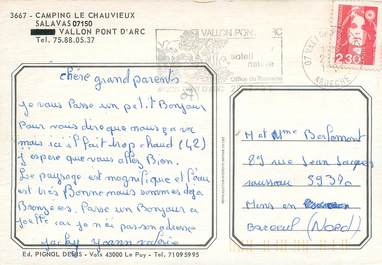 3667 - CAMPING LE CHAUVIEUX
SALAVAS 07150
VALLON PONT D'ARC
Tel. 75.88.05.37
VALLON PONT
soleil
nature
Office du Tourisme
07 VALLON
ARDECHE
2,30
chère grand parents
je vous passe un petit Bonjour
Pour vous dire que nous ça va
nous ici il fait trop chaud (42)
J espere que vous allez Bien.
Le paysage est magnifique et l'eau
est très Bonne nous sommes déja
Bronzées. Passe un Bonjour a
Joëlle car jé n'ai pas son adresse
Jacky yoann valérie
M et Mme Berlemont
89 rue Jean Jacques
rousseau 59370
Mons en
Baroeul (Nord)
Ed. PIGNOL DENIS - Vals 43000 Le Puy - Tel. 71095995